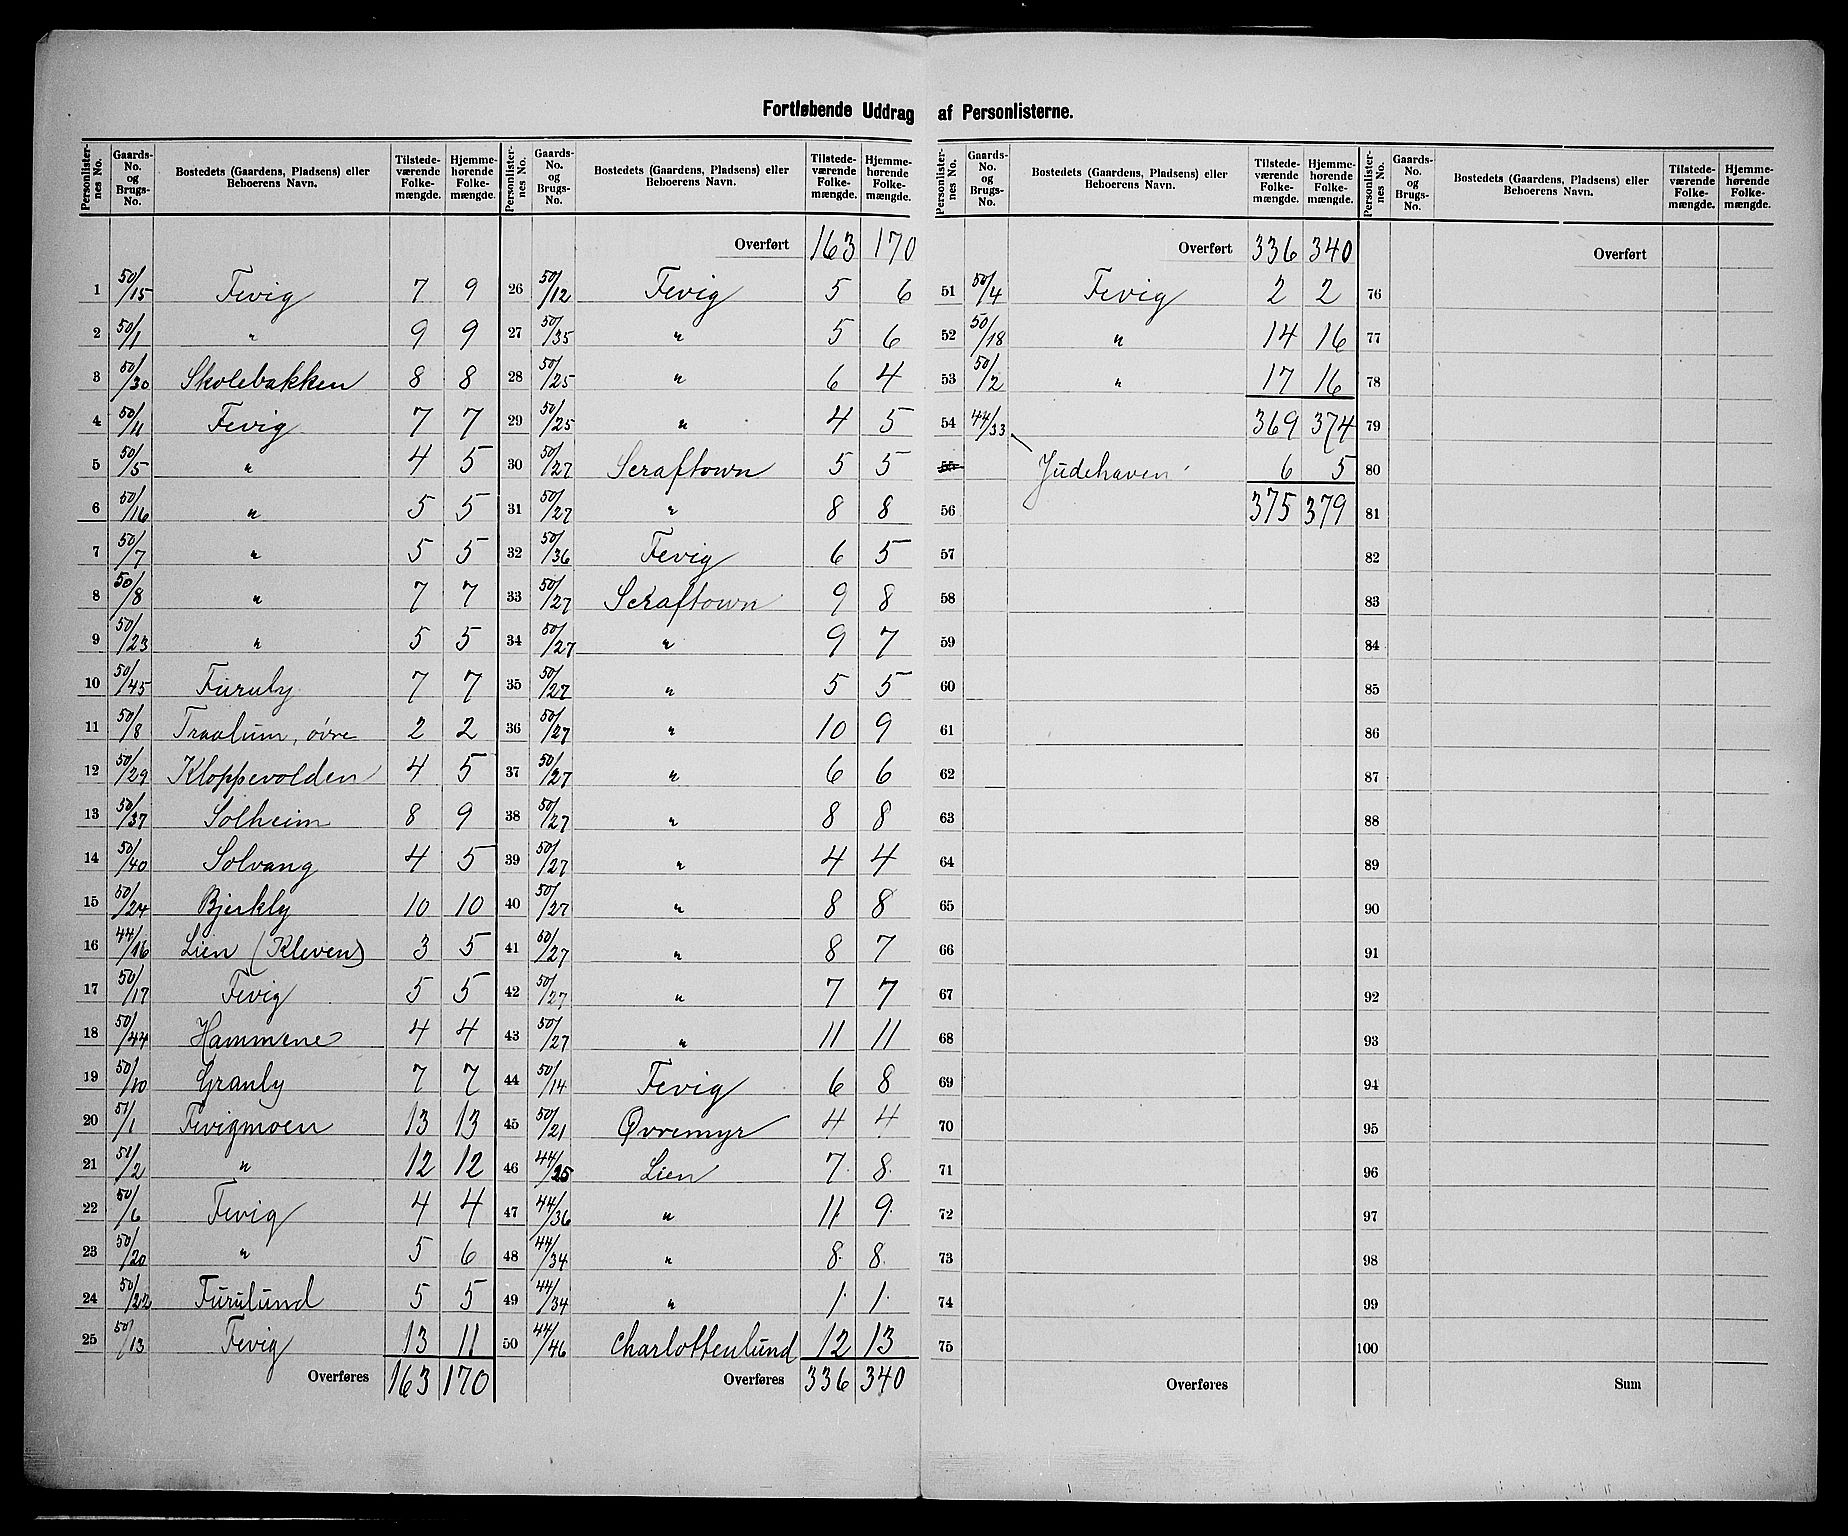 Fortløbende Uddrag af Personlisterne.
Personlisternes No. | Gaards-No. og Brugs-No. | Bostedets (Gaardens, Pladsens) eller Beboerens Navn. | Tilstedeværende Folkemængde. | Hjemmehørende Folkemængde.
1 50/15 Fevig 7 9
2 50/1 " 9 9
3 50/30 Skolebakken 8 8
4 50/11 Fevig 7 7
5 50/5 " 4 5
6 50/16 " 5 5
7 50/7 " 5 5
8 50/8 " 7 7
9 50/23 " 5 5
10 50/45 Furuly 7 7
11 50/8 Traalum, øvre 2 2
12 50/29 Kloppevolden 4 5
13 50/37 Solheim 8 9
14 50/40 Solvang 4 5
15 50/24 Bjerkly 10 10
16 44/16 Lien (Kleven) 3 5
17 50/17 Fevig 5 5
18 50/44 Hammene 4 4
19 50/10 Granly 7 7
20 51/1 Fevigmoen 13 13
21 51/2 " 12 12
22 50/6 Fevig 4 4
23 50/20 " 5 6
24 50/22 Furulund 5 5
25 50/13 Fevig 13 11
Overføres 163 170
Personlisternes No. | Gaards-No. og Brugs-No. | Bostedets (Gaardens, Pladsens) eller Beboerens Navn. | Tilstedeværende Folkemængde. | Hjemmehørende Folkemængde.
Overført 163 170
26 50/12 Fevig 5 6
27 50/35 " 5 6
28 50/25 " 6 4
29 50/25 " 4 5
30 50/27 Scraftown 5 5
31 50/27 " 8 8
32 50/36 Fevig 6 5
33 50/27 Scraftown 9 8
34 50/27 " 9 7
35 50/27 " 5 5
36 50/27 " 10 9
37 50/27 " 6 6
38 50/27 " 8 8
39 50/27 " 4 4
40 50/27 " 8 8
41 50/27 " 8 7
42 50/27 " 7 7
43 50/27 " 11 11
44 50/14 Fevig 6 8
45 50/21 Øvremyr 4 4
46 44/25 Lien 7. 8.
47 44/36 " 11 9.
48 44/34 " 8. 8.
49 44/34 " 1. 1.
50 44/46 Charlottenlund 12 13
Overføres 336 340
Personlisternes No. | Gaards-No. og Brugs-No. | Bostedets (Gaardens, Pladsens) eller Beboerens Navn. | Tilstedeværende Folkemængde. | Hjemmehørende Folkemængde.
Overført 336 340
51 50/4 Fevig 2 2
52 50/18 " 14 16
53 50/2 " 17 16
54 44/33 369 374
55 Judehaven 6 5
56 375 379
57
58
59
60
61
62
63
64
65
66
67
68
69
70
71
72
73
74
75
Overføres
Personlisternes No. | Gaards-No. og Brugs-No. | Bostedets (Gaardens, Pladsens) eller Beboerens Navn. | Tilstedeværende Folkemængde. | Hjemmehørende Folkemængde.
Overført
76
77
78
79
80
81
82
83
84
85
86
87
88
89
90
91
92
93
94
95
96
97
98
99
100
Sum